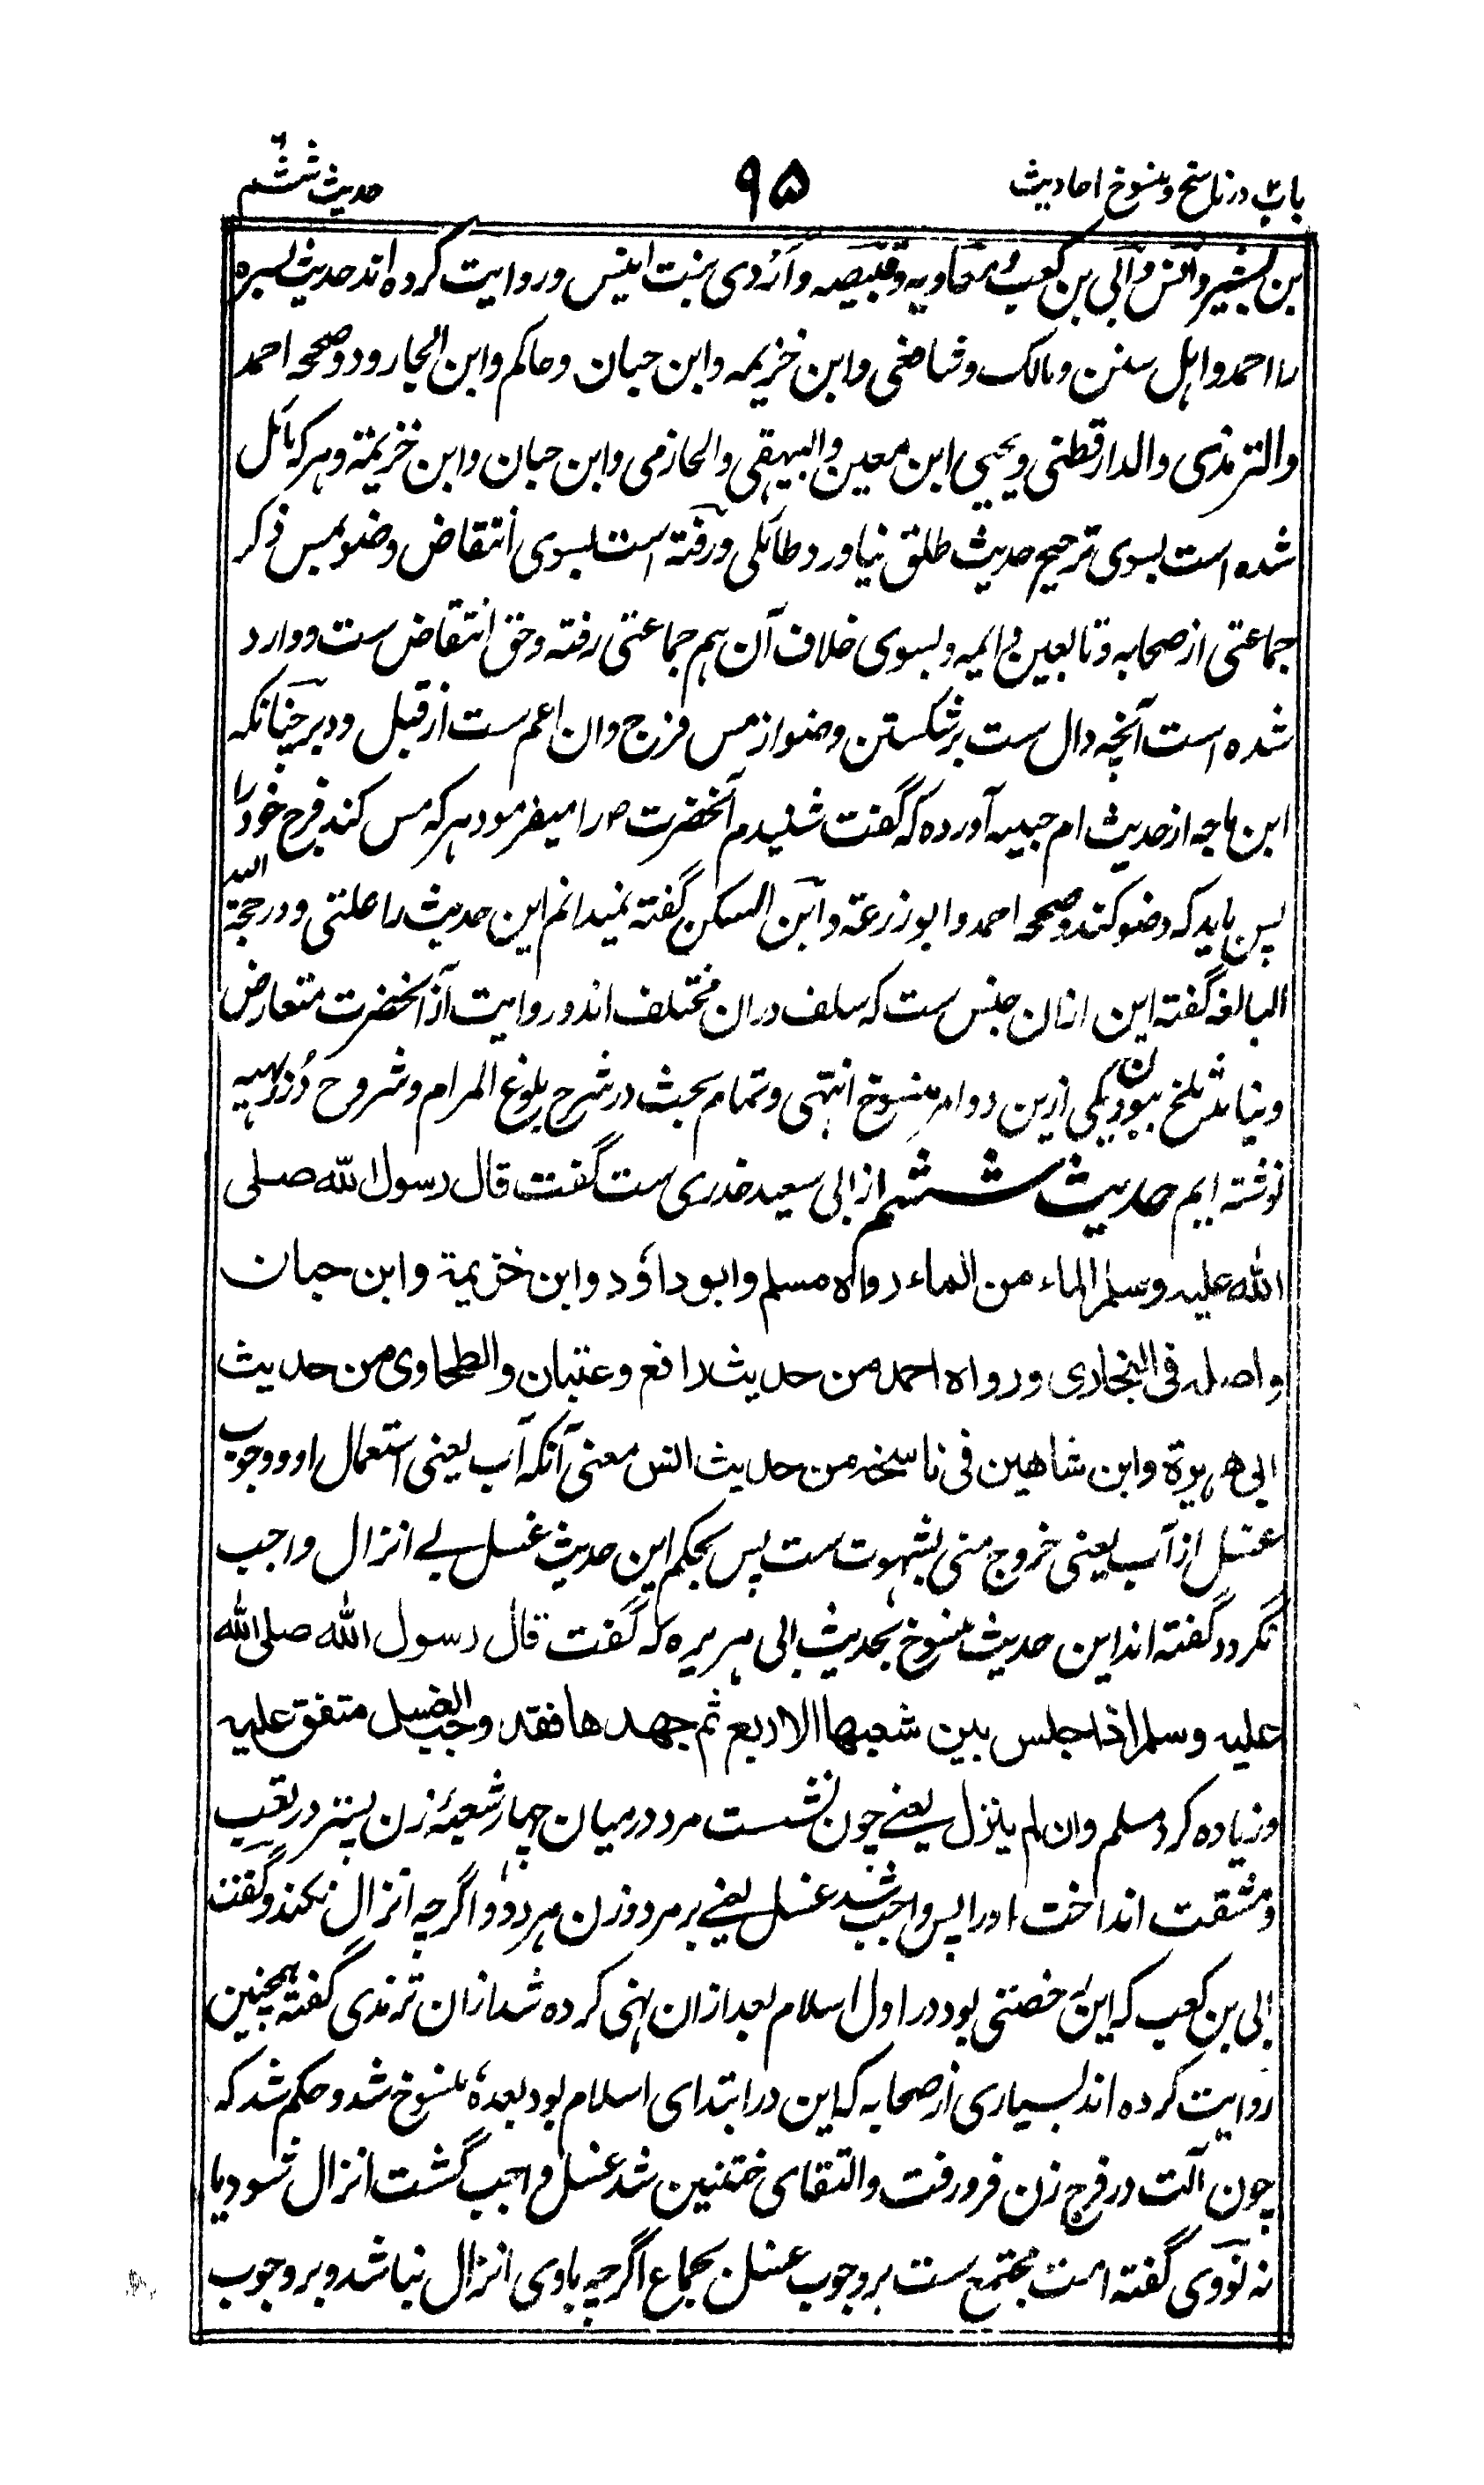 باب۲ در ناسخ و منسوخ احادیث ۹۵ حدیث ششم
بن بشیر و انس و ابی بن کعب و معاویه و قبیصه و اروی بنت انیس و روایت کرده اند حدیث بسره
را احمد و اہل سنن و مالک و شافعی و ابن خزیمه و ابن حبان و حاکم و ابن الجارود و صححه احمد
والترمذی والدارقطنی و یحیی ابن معین والبیہقی والحازمی وابن حبان وابن خزیمة و ہر که مائل
شده است بسوی ترجیح حدیث طلق نیاورد طائلی و رفته است بسوی انتقاض وضو بمس ذکر
جماعتی از صحابه و تابعین و ایمه و بسوی خلاف آن ہم جماعتی رفته و حق انتقاض ست و وارد
شده است آنچه دال ست بر شکستن وضو از مس فرج و ان اعم ست از قبل و دبر چنانکه
ابن ماجه از حدیث ام حبیبه آورده که گفت شنیدم آنحضرت صلعم را میفرمود ہر که مس کند فرج خود را
پس باید که وضو کند و صححه احمد و ابو زرعة و ابن السکن گفته نمیدانم این حدیث را علتی و در حجة الله
البالغه گفته این ازان جنس ست که سلف دران مختلف اند و روایت از آنحضرت متعارض
و نباشد تلخ نبودن یکی ازین دو امر منسوخ انتہی و تمام بحث در شرح بلوغ المرام و شروح درر بہیه
نوشته ایم حدیث ششم از ابی سعید خدری ست گفت قال رسول الله صلی
الله علیه وسلم الماء من الماء رواه مسلم وابو داؤد وابن خزیمة وابن حبان
واصله فی البخاری ورواه احمد من حدیث رافع وعتبان والطحاوی من حدیث
ابی هریرة وابن شاهین فی ناسخه من حدیث انس معنی آنکه آب یعنی استعمال او و وجوب
غسل از آب یعنی خروج منی بشہوت ست پس بحکم این حدیث غسل بے انزال واجب
نگردد و گفته اند این حدیث منسوخ بحدیث ابی ہریره که گفت قال رسول الله صلی الله
علیه وسلم اذا جلس بین شعبها الاربع ثم جهدها فقد وجب الغسل متفق علیه
و زیاده کرد مسلم وان لم ینزل یعنے چون نشست مرد درمیان چہار شعبۂ زن پستر در تعب
و مشقت انداخت او را پس واجب شد غسل یعنے بر مرد و زن ہر دو و اگرچه انزال نکند و گفت
ابی بن کعب که این رخصتی بود در اول اسلام بعد ازان نہی کرده شد ازان ترمذی گفته ہمچنین
روایت کرده اند بسیاری از صحابه که این در ابتدای اسلام بود بعدہٗ منسوخ شد و حکم شد که
چون آلت در فرج زن فرو رفت و التقای ختنین شد غسل واجب گشت انزال شود یا
نه نووی گفته امت مجتمع ست بر وجوب غسل بجماع اگرچه با وی انزال نباشد و بر وجوب